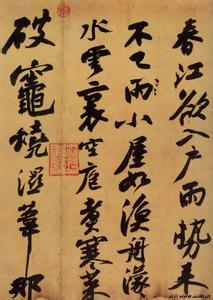 春江欲入戶雨勢來
不已雨小屋如漁舟濛々
水雲裏空庖煮寒菜
破竈燒濕葦那